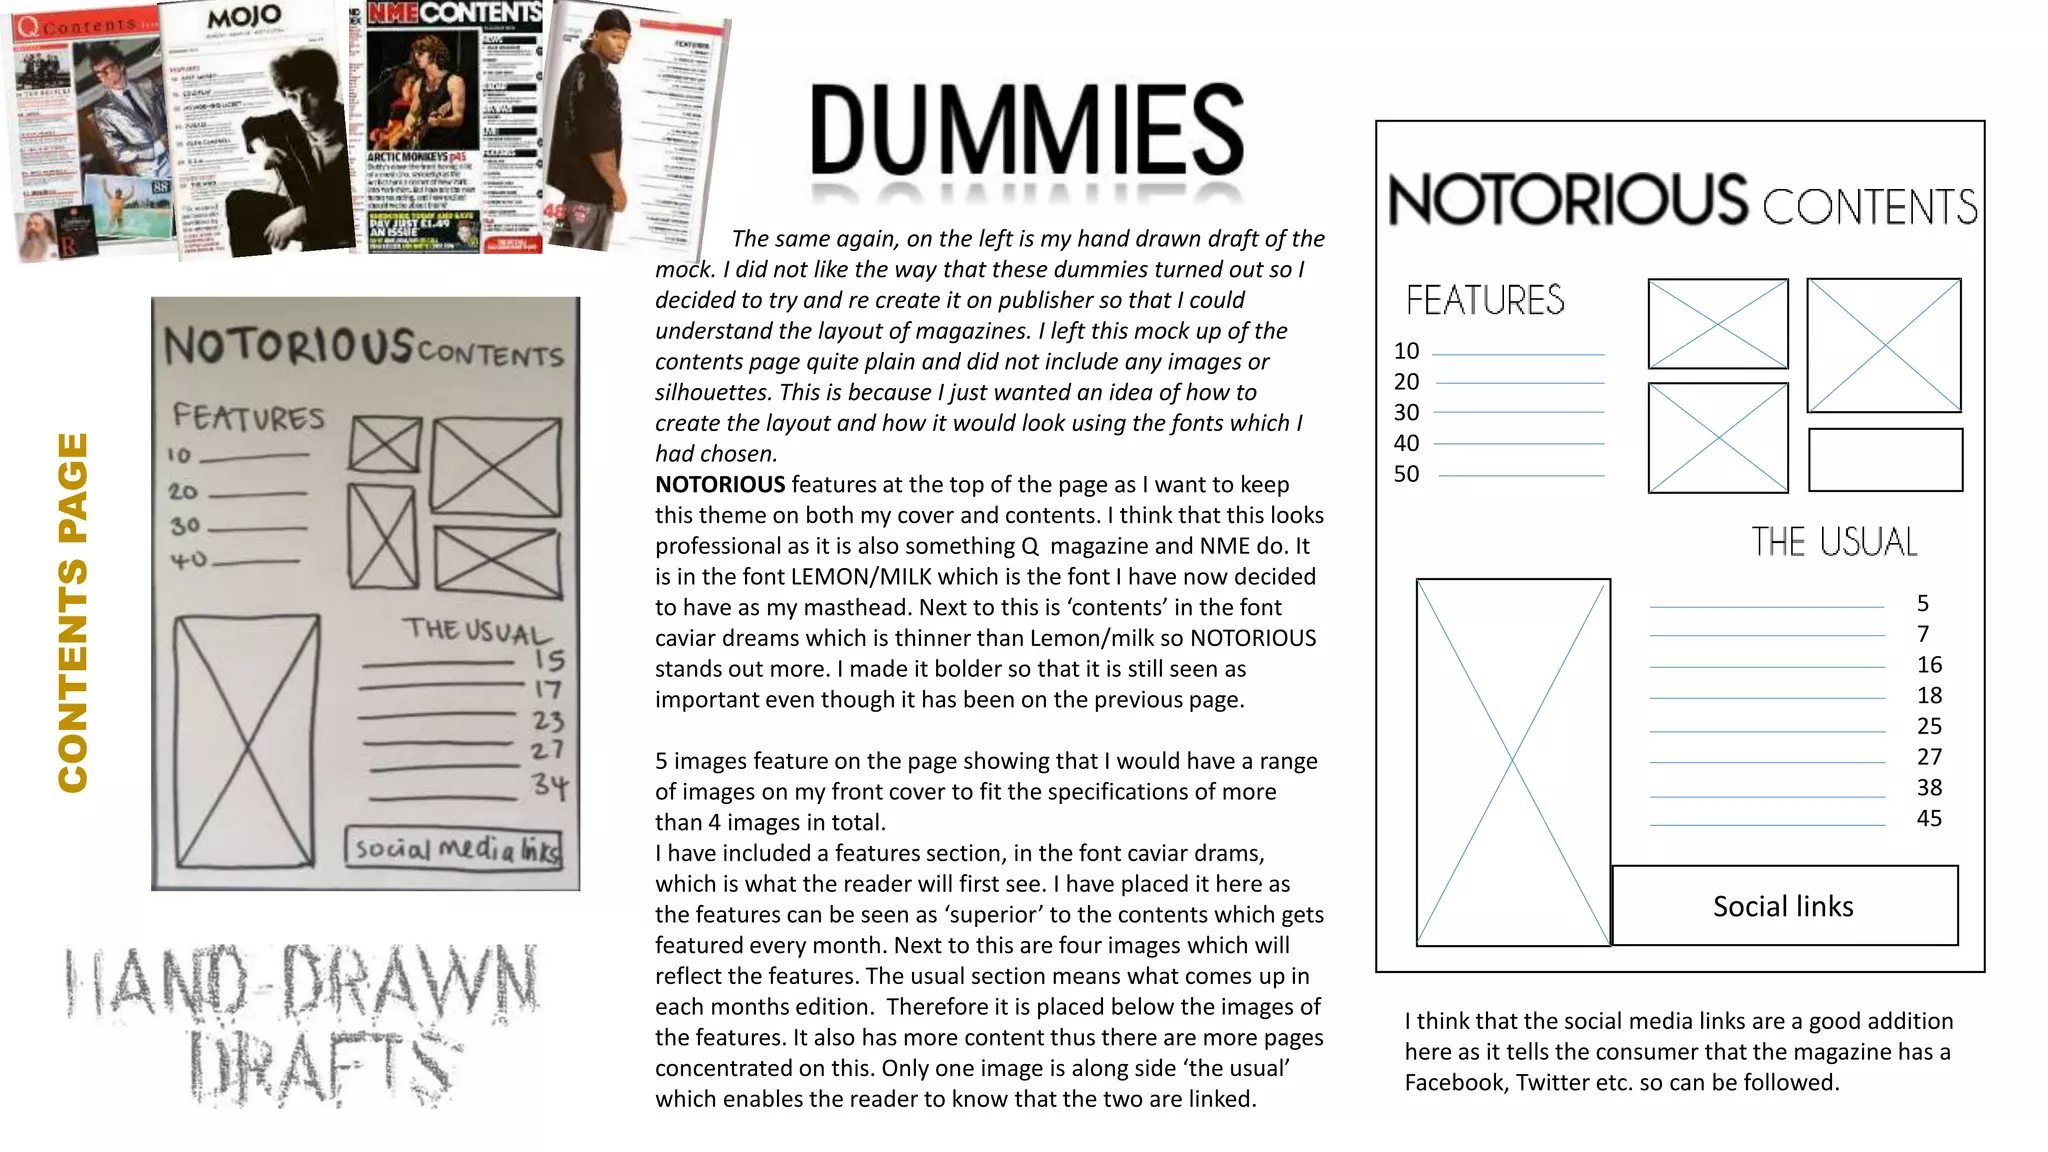 Q Contents
MOJO
FEATURES
COLDPLAY
THE WHO
88
R
NME CONTENTS
NEWS
RADAR
LIVE
FEATURES
ARCTIC MONKEYS p45
SUBSCRIBE TODAY AND SAVE
PAY JUST £1.49
AN ISSUE
FEATURES
48
DUMMIES
CONTENTS PAGE
NOTORIOUS CONTENTS
FEATURES
10
20
30
40
THE USUAL
15
17
23
27
34
social media links
HAND-DRAWN
DRAFTS
The same again, on the left is my hand drawn draft of the
mock. I did not like the way that these dummies turned out so I
decided to try and re create it on publisher so that I could
understand the layout of magazines. I left this mock up of the
contents page quite plain and did not include any images or
silhouettes. This is because I just wanted an idea of how to
create the layout and how it would look using the fonts which I
had chosen.
NOTORIOUS features at the top of the page as I want to keep
this theme on both my cover and contents. I think that this looks
professional as it is also something Q  magazine and NME do. It
is in the font LEMON/MILK which is the font I have now decided
to have as my masthead. Next to this is ‘contents’ in the font
caviar dreams which is thinner than Lemon/milk so NOTORIOUS
stands out more. I made it bolder so that it is still seen as
important even though it has been on the previous page.
5 images feature on the page showing that I would have a range
of images on my front cover to fit the specifications of more
than 4 images in total.
I have included a features section, in the font caviar drams,
which is what the reader will first see. I have placed it here as
the features can be seen as ‘superior’ to the contents which gets
featured every month. Next to this are four images which will
reflect the features. The usual section means what comes up in
each months edition.  Therefore it is placed below the images of
the features. It also has more content thus there are more pages
concentrated on this. Only one image is along side ‘the usual’
which enables the reader to know that the two are linked.
NOTORIOUS CONTENTS
FEATURES
10
20
30
40
50
THE USUAL
5
7
16
18
25
27
38
45
Social links
I think that the social media links are a good addition
here as it tells the consumer that the magazine has a
Facebook, Twitter etc. so can be followed.